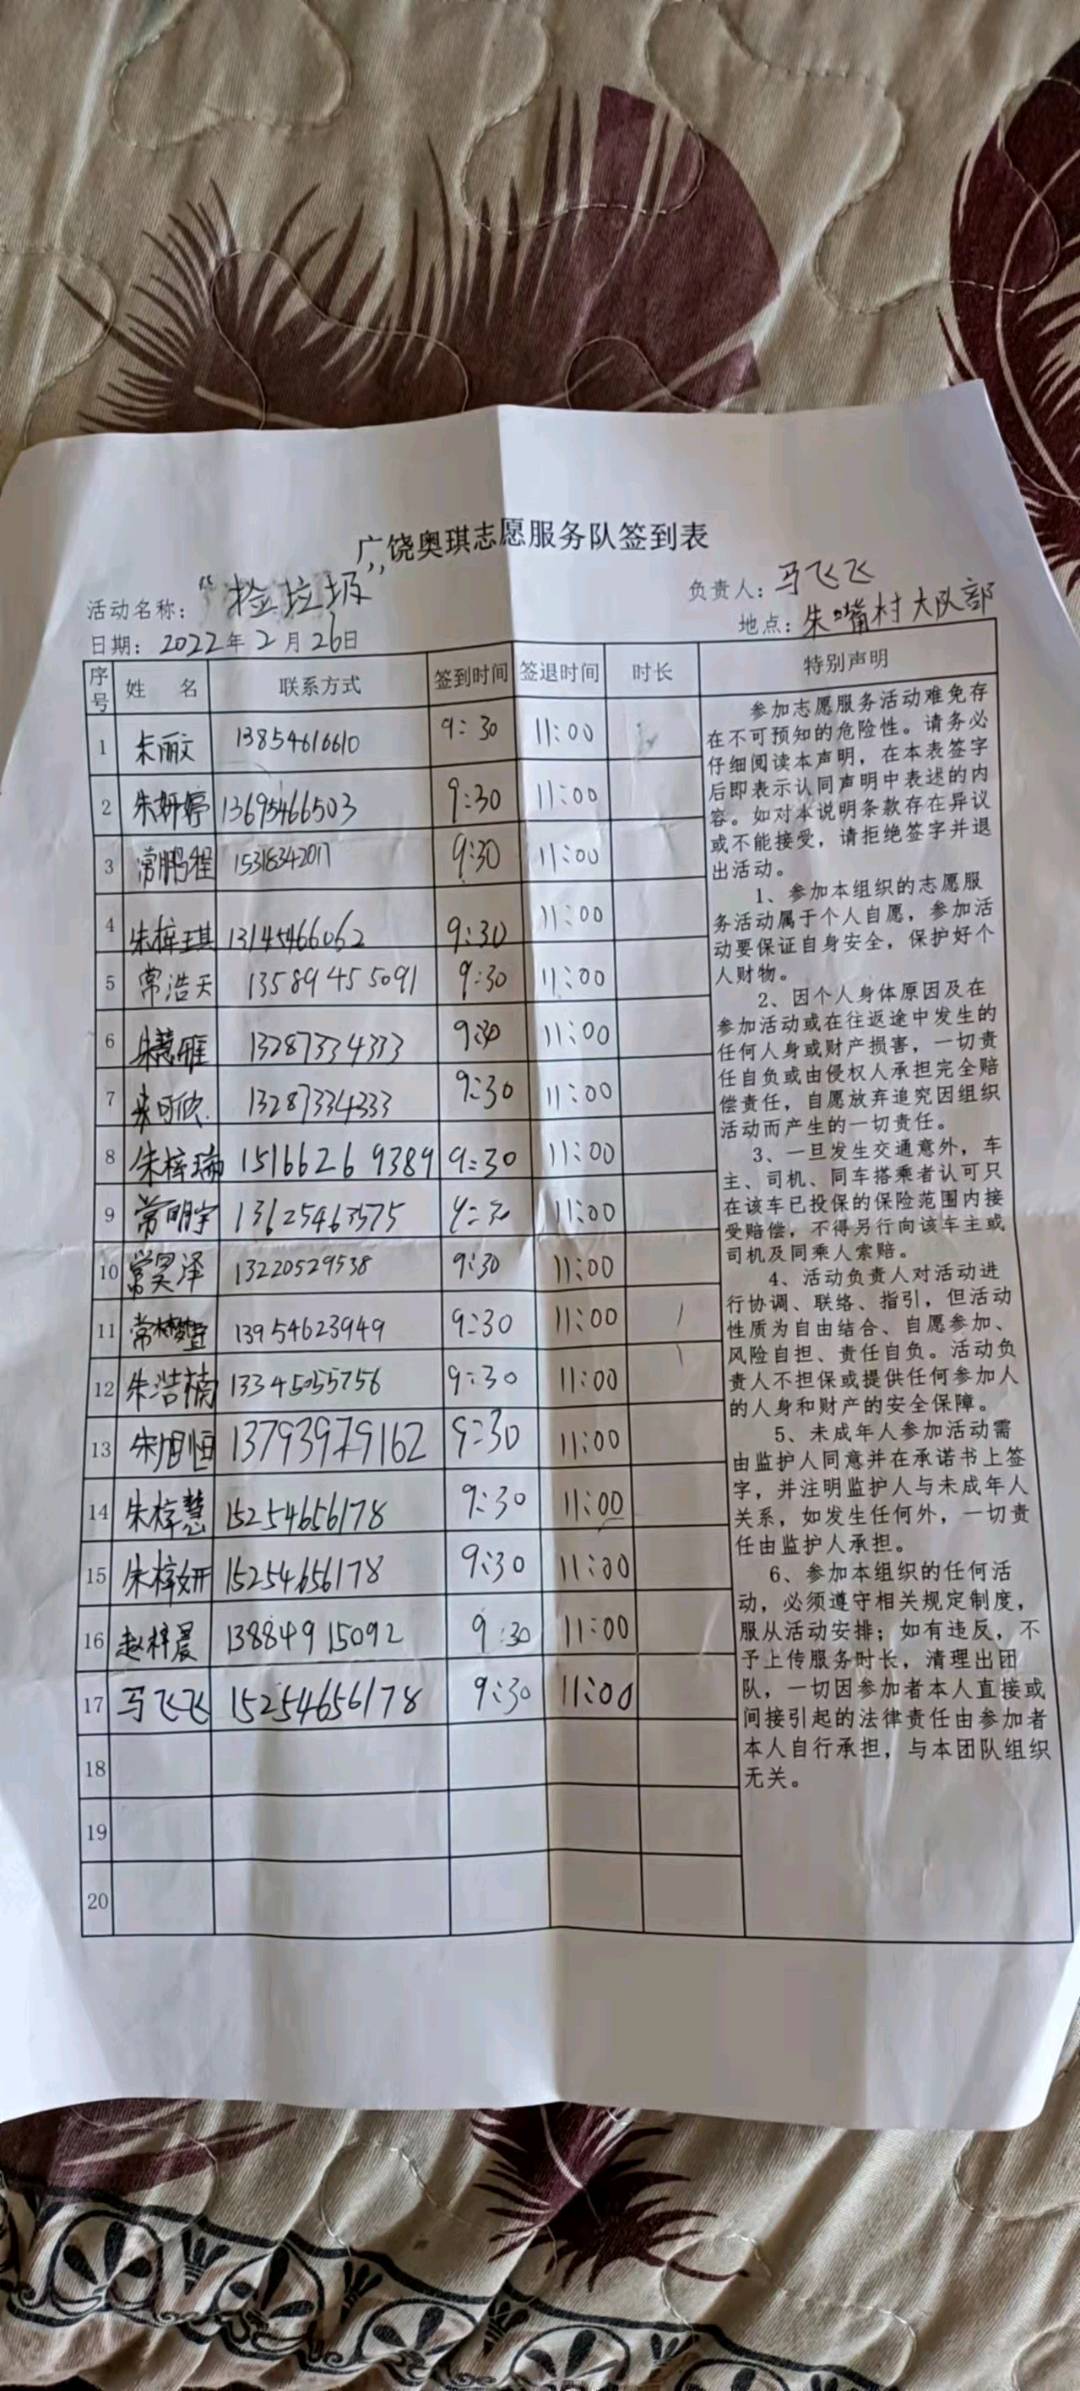 广饶奥琪志愿服务队签到表
活动名称：“捡垃圾” 负责人：马飞飞
日期：2022年2月26日 地点：朱嘴村大队部
序号 姓 名 联系方式 签到时间 签退时间 时长 特别声明
1 朱丽文 13854616610 9:30 11:00
2 朱妍婷 13695466503 9:30 11:00
3 常鹏程 15318342017 9:30 11:00
4 朱梓琪 13145466062 9:30 11:00
5 常浩天 13589455091 9:30 11:00
6 13287334333 9:30 11:00
7 13287334333 9:30 11:00
8 朱梓瑞 15166269389 9:30 11:00
9 常明宇 13625463575 9:30 11:00
10 常昊泽 13220529538 9:30 11:00
11 常 13954623949 9:30 11:00
12 朱浩楠 13345055756 9:30 11:00
13 朱旭恒 13793979162 9:30 11:00
14 朱梓慧 15254656178 9:30 11:00
15 朱梓妍 15254656178 9:30 11:00
16 赵梓晨 13884915092 9:30 11:00
17 马飞飞 15254656178 9:30 11:00
18
19
20
参加志愿服务活动难免存
在不可预知的危险性。请务必
仔细阅读本声明，在本表签字
后即表示认同声明中表述的内
容。如对本说明条款存在异议
或不能接受，请拒绝签字并退
出活动。
1、参加本组织的志愿服
务活动属于个人自愿，参加活
动要保证自身安全，保护好个
人财物。
2、因个人身体原因及在
参加活动或在往返途中发生的
任何人身或财产损害，一切责
任自负或由侵权人承担完全赔
偿责任，自愿放弃追究因组织
活动而产生的一切责任。
3、一旦发生交通意外，车
主、司机、同车搭乘者认可只
在该车已投保的保险范围内接
受赔偿，不得另行向该车主或
司机及同乘人索赔。
4、活动负责人对活动进
行协调、联络、指引，但活动
性质为自由结合、自愿参加、
风险自担、责任自负。活动负
责人不担保或提供任何参加人
的人身和财产的安全保障。
5、未成年人参加活动需
由监护人同意并在承诺书上签
字，并注明监护人与未成年人
关系，如发生任何外，一切责
任由监护人承担。
6、参加本组织的任何活
动，必须遵守相关规定制度，
服从活动安排；如有违反，不
予上传服务时长，清理出团
队，一切因参加者本人直接或
间接引起的法律责任由参加者
本人自行承担，与本团队组织
无关。